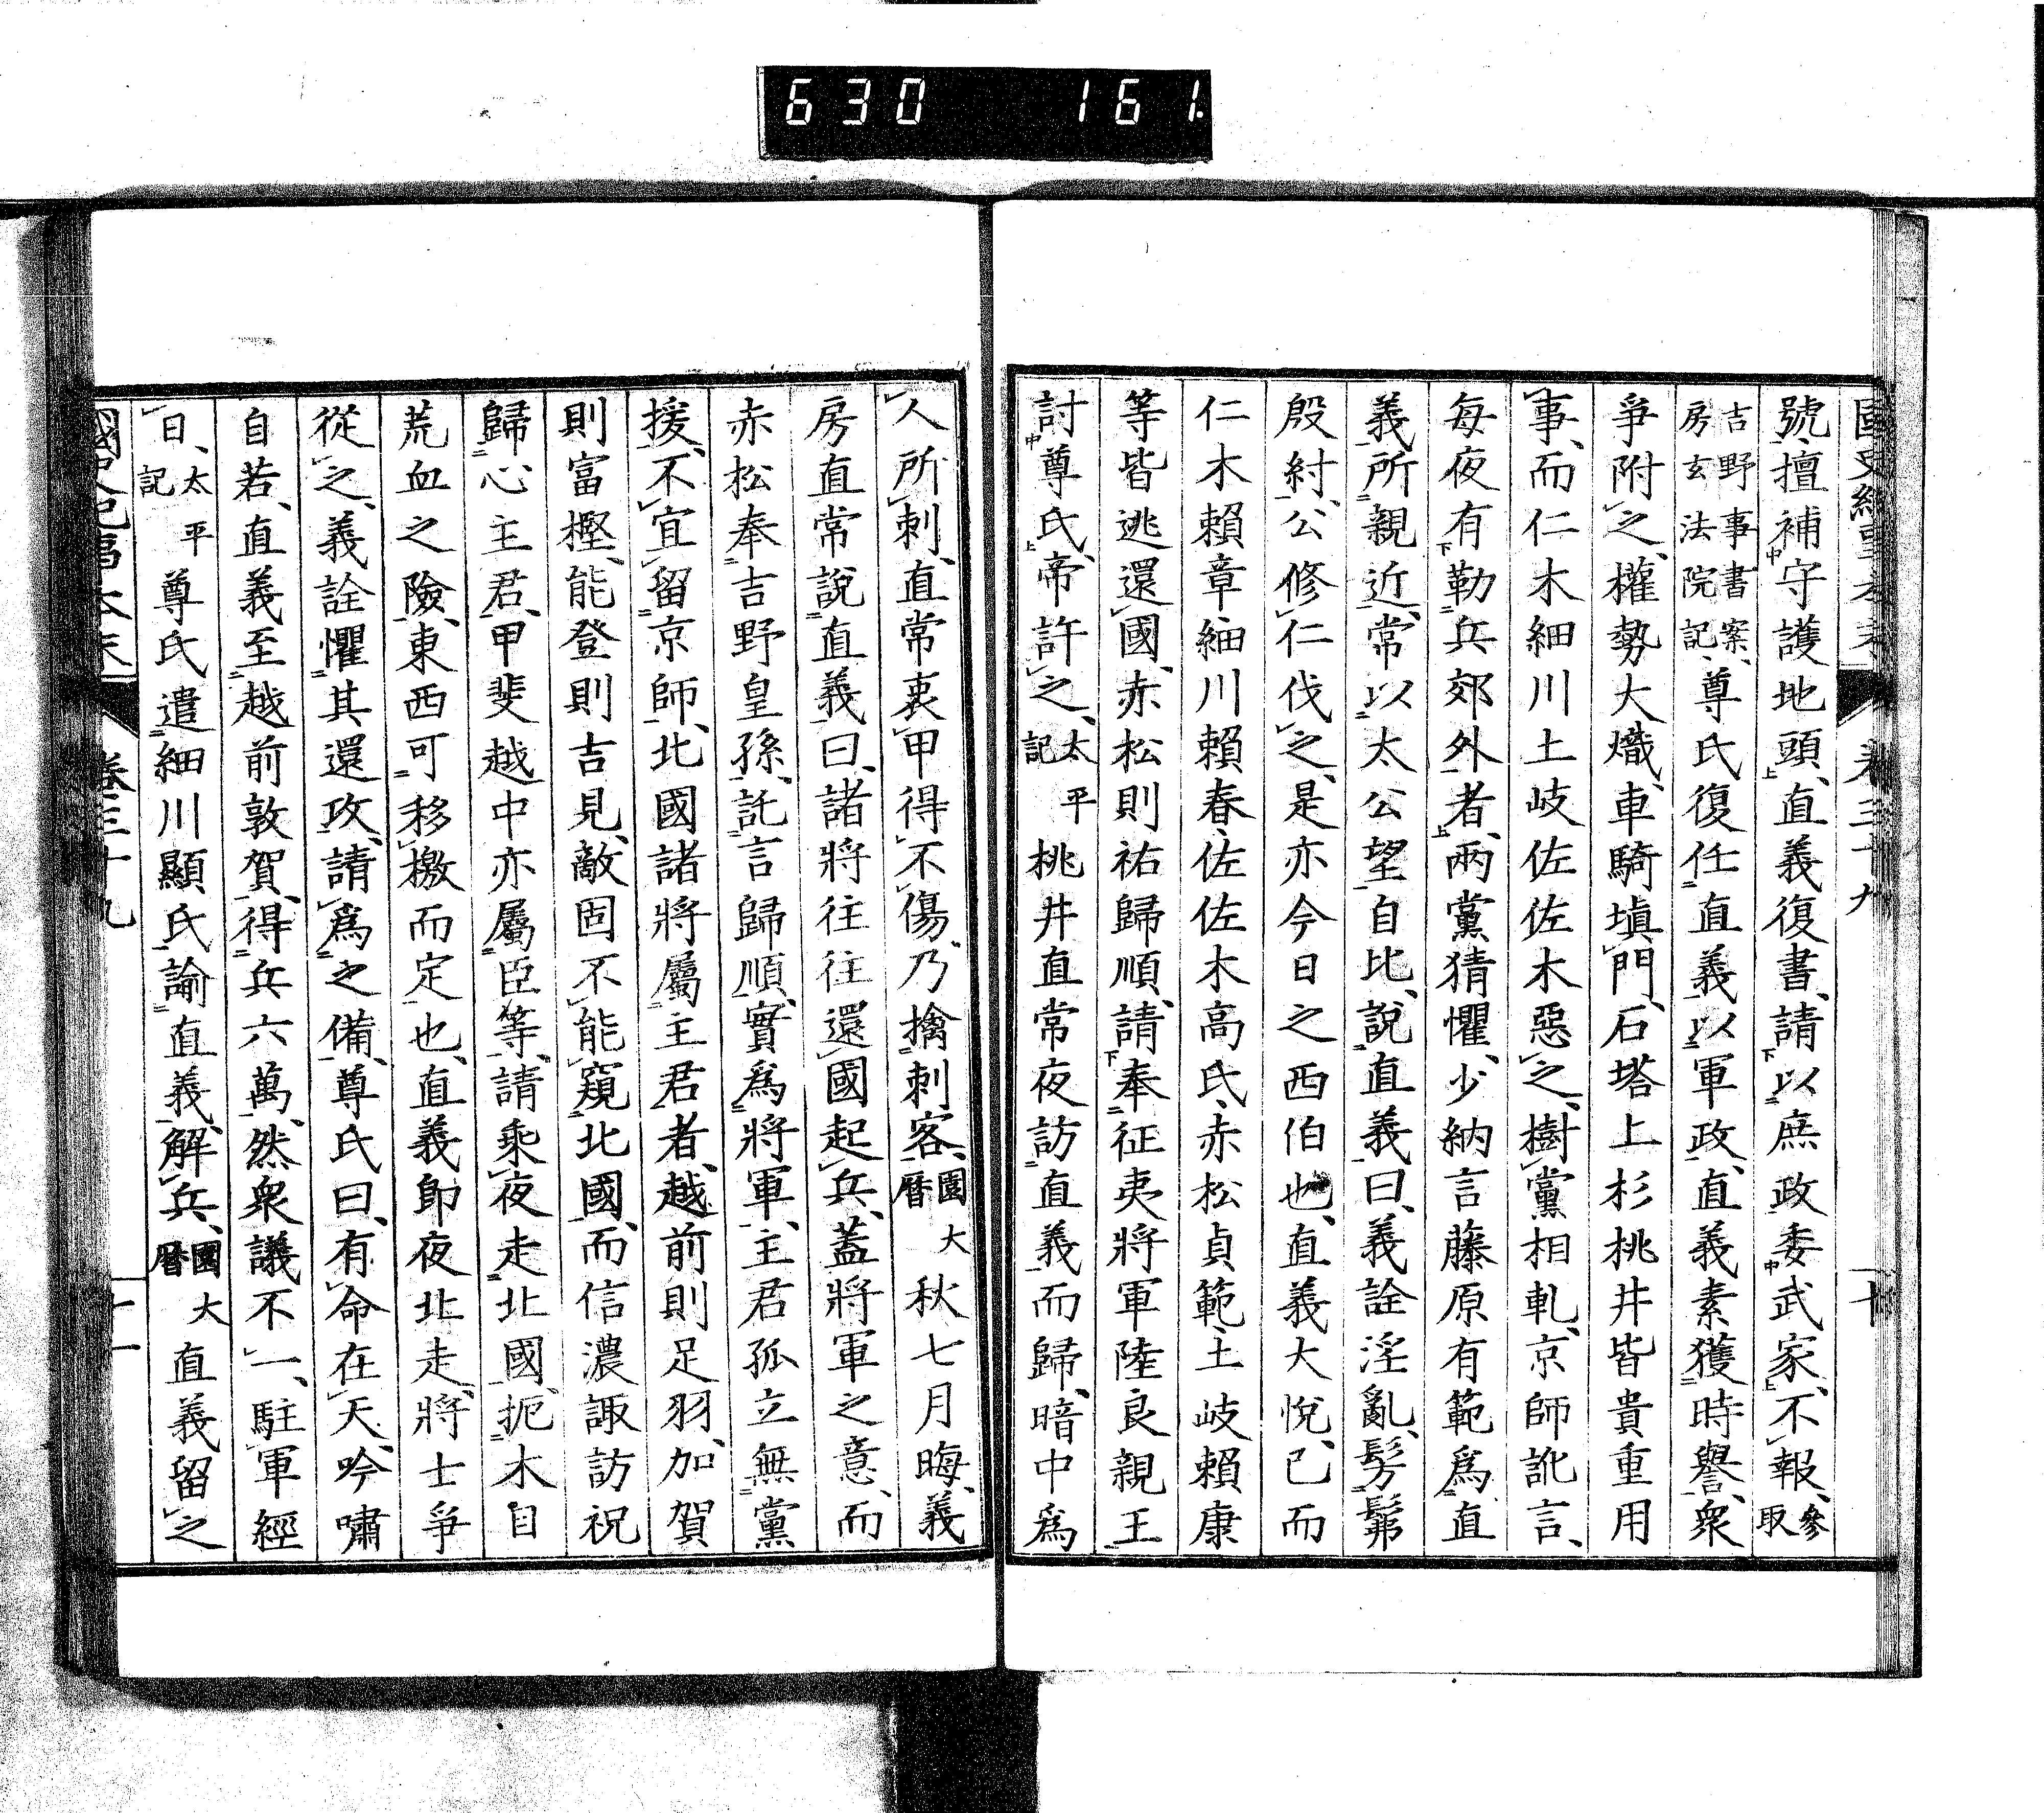 630 161.
國史紀事本末 卷三十九 十
號、擅補守護地頭、直義復書、請以庶政委武家、不報、參取
吉野事書案、房玄法院記、尊氏復任直義以軍政、直義素獲時譽、衆
爭附之、權勢大熾、車騎塡門、石塔上杉桃井皆貴重用
事、而仁木細川土岐佐佐木惡之、樹黨相軋、京師訛言、
每夜有勒兵郊外者、兩黨猜懼、少納言藤原有範爲直
義所親近、常以太公望自比、說直義曰、義詮淫亂、髣髴
殷紂、公修仁伐之、是亦今日之西伯也、直義大悅、已而
仁木賴章、細川賴春、佐佐木高氏、赤松貞範、土岐賴康
等皆逃還國、赤松則祐歸順、請奉征夷將軍陸良親王
討尊氏、帝許之、太平記 桃井直常夜訪直義而歸、暗中爲
人所刺、直常衷甲得不傷、乃擒刺客、園大曆 秋七月晦、義
房直常說直義曰、諸將往往還國起兵、蓋將軍之意、而
赤松奉吉野皇孫、託言歸順、實爲將軍、主君孤立無黨
援、不宜留京師、北國諸將屬主君者、越前則足羽、加賀
則富樫、能登則吉見、敵固不能窺北國、而信濃諏訪祝
歸心主君、甲斐越中亦屬臣等、請乘夜走北國、扼木目
荒血之險、東西可移檄而定也、直義卽夜北走、將士爭
從之、義詮懼其還攻、請爲之備、尊氏曰、有命在天、吟嘯
自若、直義至越前敦賀、得兵六萬、然衆議不一、駐軍經
日、太平記 尊氏遣細川顯氏諭直義解兵、園大曆 直義留之
國史紀事本末 卷三十九 十一